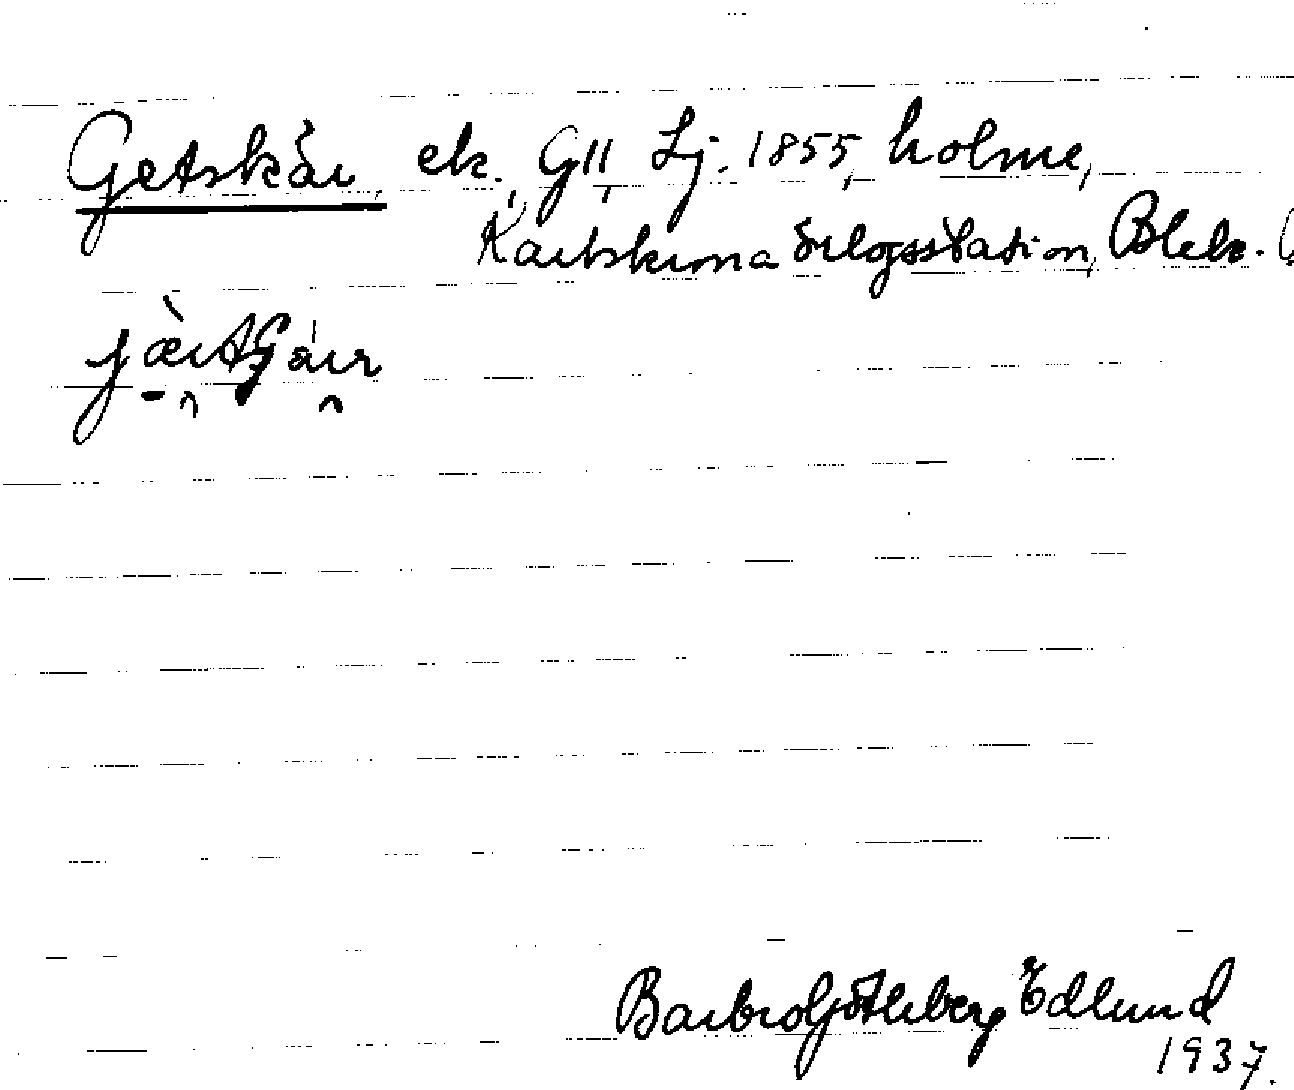 Getskär, ek., G11, Lj. 1855, holme,
Karlskrona örlogsstation, Blek.
Barbro Götheberg Edlund
1937.